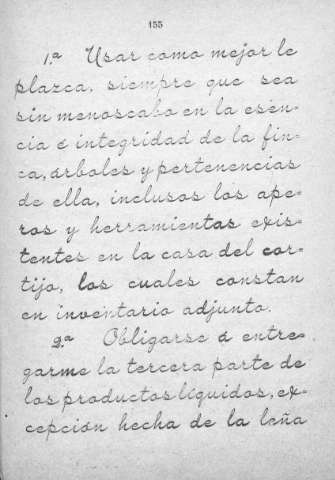 155
1.ª Usar como mejor le
plazca, siempre que sea
sin menoscabo en la esen=
cia é integridad de la fin=
ca, árboles y pertenencias
de ella, inclusos los ape=
ros y herramientas exis=
tentes en la casa del cor=
tijo, los cuales constan
en inventario adjunto.
2.ª Obligarse á entre=
garme la tercera parte de
los productos líquidos, ex=
cepción hecha de la leña